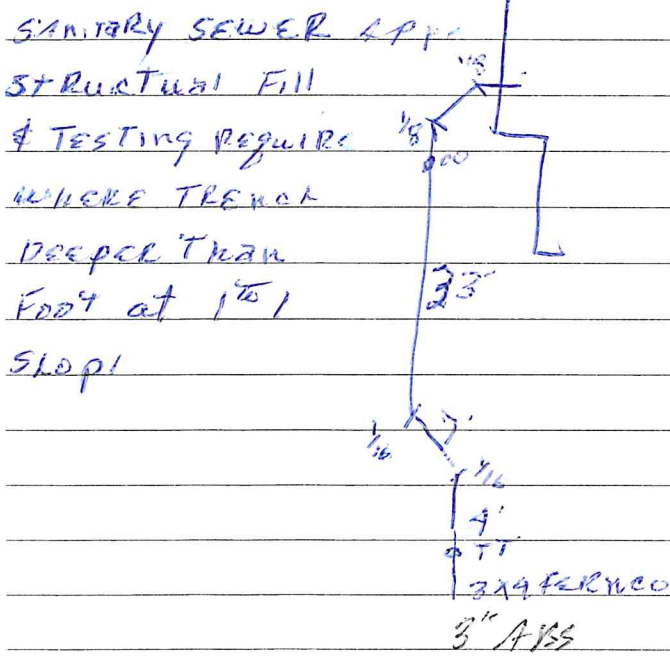 SANITARY SEWER
STRUCTUAL FILL
& TESTING REQUIRE
WHERE TRENCH
DEEPER THAN
FOOT at 1 to 1
SLOPE
1/8
1/8
CO
33'
1/16
7'
1/16
4'
TT
3x4 FERNCO
3" ABS